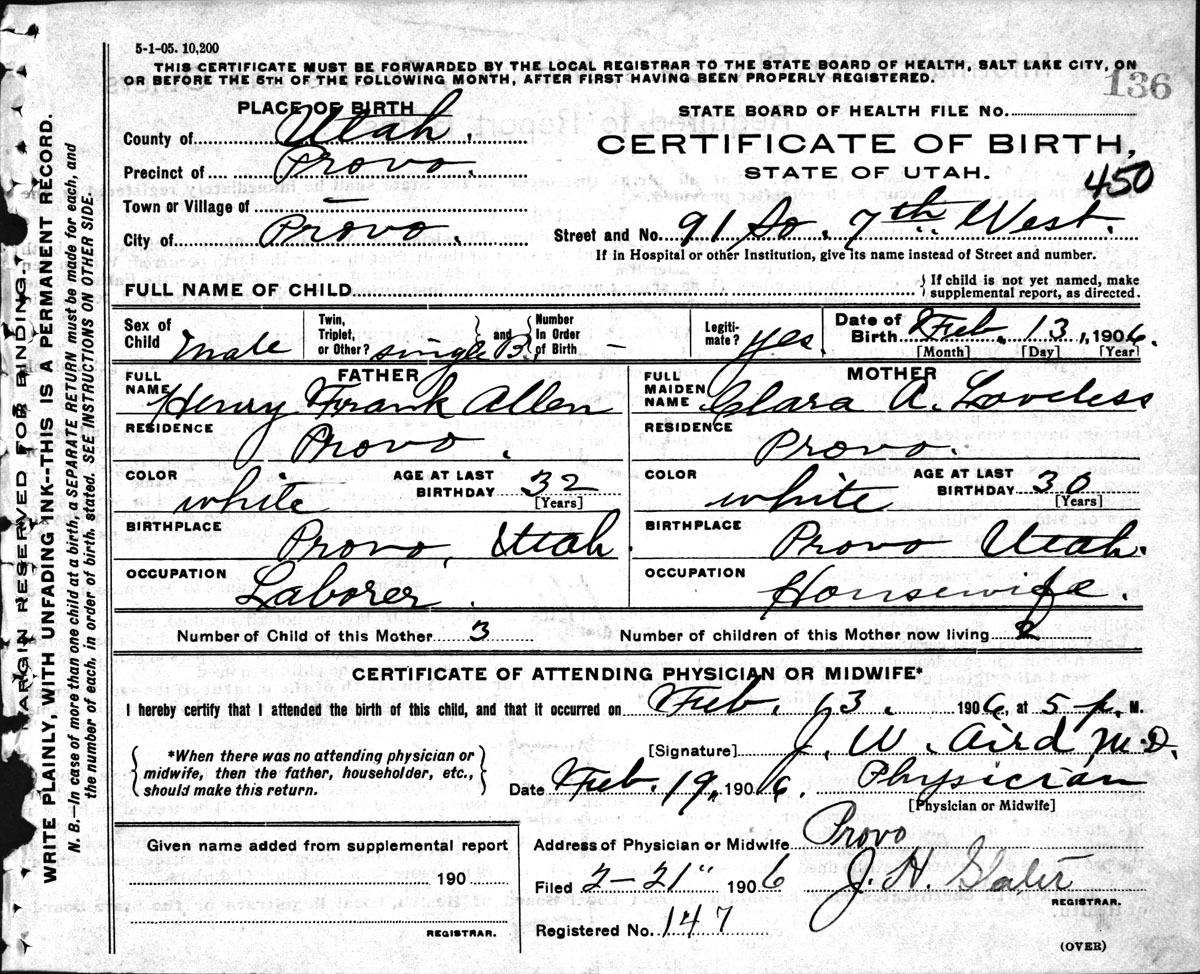 5-1-05. 10,200
THIS CERTIFICATE MUST BE FORWARDED BY THE LOCAL REGISTRAR TO THE STATE BOARD OF HEALTH, SALT LAKE CITY, ON
OR BEFORE THE 5TH OF THE FOLLOWING MONTH, AFTER FIRST HAVING BEEN PROPERLY REGISTERED.
136
PLACE OF BIRTH
STATE BOARD OF HEALTH FILE No.
County of Utah.
CERTIFICATE OF BIRTH,
Precinct of Provo.
STATE OF UTAH.
450
Town or Village of —
City of Provo.
Street and No. 91 So. 7th West.
If in Hospital or other Institution, give its name instead of Street and number.
FULL NAME OF CHILD
{If child is not yet named, make
supplemental report, as directed.
Sex of Child Male
Twin, Triplet, or Other? single B. and Number In Order of Birth —
Legiti-mate? yes.
Date of Birth Feb. 13, 1906.
[Month] [Day] [Year]
FATHER
MOTHER
FULL NAME Henry Frank Allen
FULL MAIDEN NAME Clara A. Loveless
RESIDENCE Provo.
RESIDENCE Provo.
COLOR white AGE AT LAST BIRTHDAY 32 [Years]
COLOR white AGE AT LAST BIRTHDAY 30 [Years]
BIRTHPLACE Provo, Utah.
BIRTHPLACE Provo Utah.
OCCUPATION Laborer.
OCCUPATION Housewife.
Number of Child of this Mother 3
Number of children of this Mother now living 2
CERTIFICATE OF ATTENDING PHYSICIAN OR MIDWIFE*
I hereby certify that I attended the birth of this child, and that it occurred on Feb. 13. 1906, at 5 p. M.
*When there was no attending physician or
midwife, then the father, householder, etc.,
should make this return.
[Signature] J. W. Aird M.D.
Date Feb. 19, 1906. Physician
[Physician or Midwife]
Given name added from supplemental report
190
REGISTRAR.
Address of Physician or Midwife Provo
Filed 2-21" 1906 J. H. Slater
REGISTRAR.
Registered No. 147
(OVER)
MARGIN RESERVED FOR BINDING.
WRITE PLAINLY, WITH UNFADING INK--THIS IS A PERMANENT RECORD.
N. B.—In case of more than one child at a birth, a SEPARATE RETURN must be made for each, and
the number of each, in order of birth, stated. SEE INSTRUCTIONS ON OTHER SIDE.